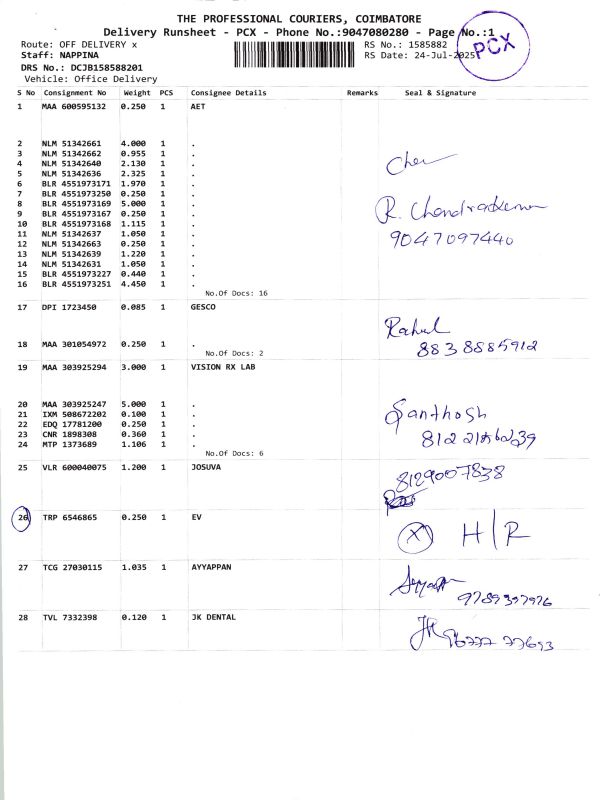 THE PROFESSIONAL COURIERS, COIMBATORE
Delivery Runsheet - PCX - Phone No.:9047080280 - Page No.:1
Route: OFF DELIVERY x
RS No.: 1585882
Staff: NAPPINA
RS Date: 24-Jul-2025
PCX
DRS No.: DCJB158588201
Vehicle: Office Delivery
S No Consignment No Weight PCS Consignee Details Remarks Seal & Signature
1 MAA 600595132 0.250 1 AET
2 NLM 51342661 4.000 1 .
3 NLM 51342662 0.955 1 .
4 NLM 51342640 2.130 1 .
5 NLM 51342636 2.325 1 .
6 BLR 4551973171 1.970 1 .
7 BLR 4551973250 0.250 1 .
8 BLR 4551973169 5.000 1 .
9 BLR 4551973167 0.250 1 .
10 BLR 4551973168 1.115 1 .
11 NLM 51342637 1.050 1 .
12 NLM 51342663 0.250 1 .
13 NLM 51342639 1.220 1 .
14 NLM 51342631 1.050 1 .
15 BLR 4551973227 0.440 1 .
16 BLR 4551973251 4.450 1 .
R.
9047097440
No.Of Docs: 16
17 DPI 1723450 0.085 1 GESCO
Rahul
18 MAA 301054972 0.250 1 .
8838885912
No.Of Docs: 2
19 MAA 303925294 3.000 1 VISION RX LAB
20 MAA 303925247 5.000 1 .
21 IXM 508672202 0.100 1 .
22 EDQ 17781200 0.250 1 .
23 CNR 1898308 0.360 1 .
24 MTP 1373689 1.106 1 .
Santhosh
No.Of Docs: 6
25 VLR 600040075 1.200 1 JOSUVA
8129007838
26 TRP 6546865 0.250 1 EV
X H/R
27 TCG 27030115 1.035 1 AYYAPPAN
9789397976
28 TVL 7332398 0.120 1 JK DENTAL
JK